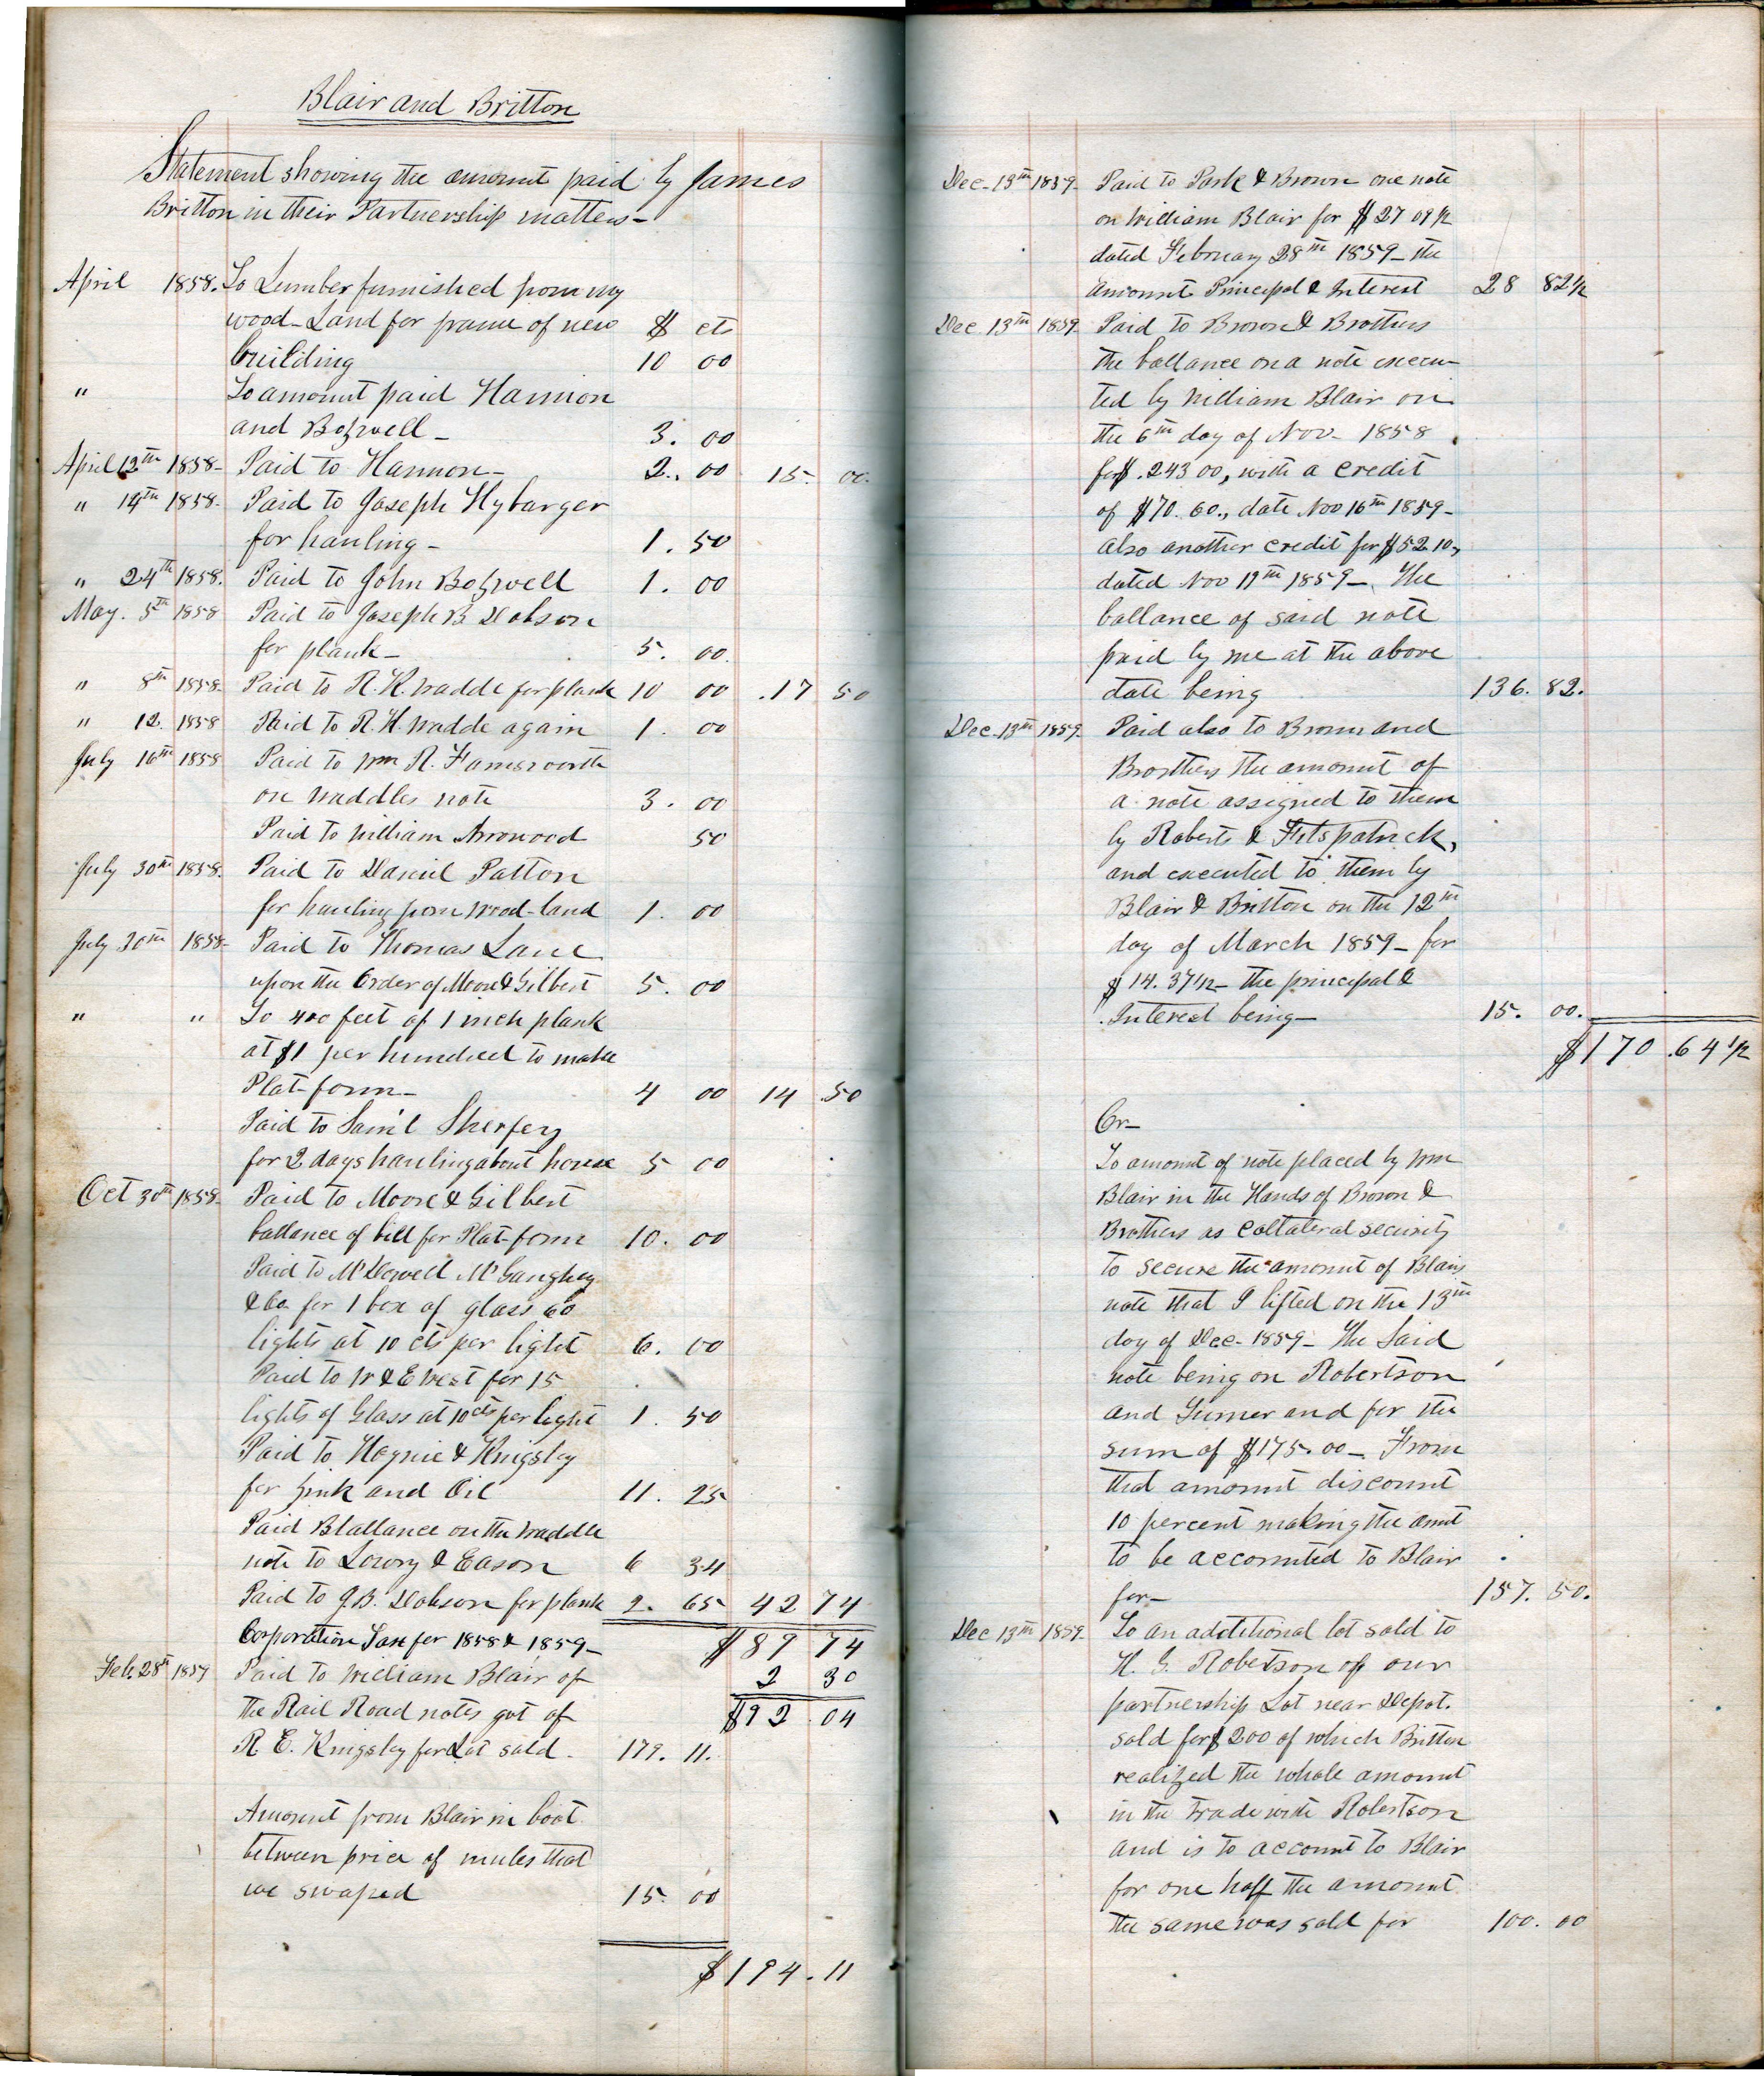 Blair and Britton
Statement showing the amount paid by James
Britton in their Partnership matters-
April 1858. To Lumber furnished from my
wood-Land for frame of new $ cts
building 10 00
" To amount paid Hannon
and Bozwell- 3. 00
April 12th 1858- Paid to Hannon- 2. 00 15. 00.
" 14th 1858. Paid to Joseph Hybarger
for hauling- 1. 50
" 24th 1858. Paid to John Bozwell 1. 00
May. 5th 1858 Paid to Joseph B Dobson
for plank- 5. 00.
" 8th 1858. Paid to R. K. Wadde for plank 10 00 .17 50
" 12. 1858 Paid to R. H. Wadde again 1. 00
July 16th 1858 Paid to Wm R. Farnsworth
on Waddles note 3. 00
Paid to William Arrowood 50
July 30th 1858. Paid to Daniel Patton
for hauling from Wood-land 1. 00
July 30th 1858- Paid to Thomas Lane
upon the Order of Moore & Gilbert 5. 00
" " To 400 feet of 1 inch plank
at $1 per hundred to make
Plat-form- 4 00 14 .50
Paid to Sam'l Sherfey
for 2 days hauling about house 5 00
Oct 30th 1858- Paid to Moore & Gilbert
ballance of bill for Plat-form 10. 00
Paid to McDowell McGaughey
& Co. for 1 box of glass 60
lights at 10 cts per light 6. 00
Paid to W & E West for 15
lights of Glass at 10 cts per light 1. 50
Paid to Haynie & Kingsley
for zink and Oil 11. 25
Paid Ballance on the Waddle
note to Lowry & Eason 6 34
Paid to J.B. Dobson for plank 2. 65 42 74
Corporation Tax for 1858 & 1859- $89 74
Feb 28th 1859 Paid to William Blair of 2 30
the Rail Road notes got of $92.04
R. E. Kingsley for Lot sold- 179. 11.
Amount from Blair in boot
between price of mules that
we swaped 15. 00
$194.11
Dec-13th 1859- Paid to Park & Brown one note
on William Blair for $27 09½
dated February 28th 1859- the
amount Principal & Interest 28 82½
Dec. 13th 1859- Paid to Brown & Brothers
the ballance on a note execu-
ted by William Blair on
the 6th day of Nov- 1858
for $.243 00, with a credit
of $70. 60., date Nov 16th 1859-
also another credit for $52 10,
dated Nov 19th 1859- The
ballance of said note
paid by me at the above
date being 136. 82.
Dec-13th 1859- Paid also to Brown and
Brothers the amount of
a note assigned to them
by Roberts & Fitspatrick,
and executed to them by
Blair & Britton on the 12th
day of March 1859- for
$14. 37½- the principal &
Interest being- 15. 00.
$170.64½
Cr-
To amount of note placed by Wm
Blair in the Hands of Brown &
Brothers as Collateral security
to secure the amount of Blairs
note that I lifted on the 13th
day of Dec- 1859- The Said
note being on Robertson
and Turner and for the
sum of $175.00- From
that amount discount
10 percent making the amt
to be accounted to Blair
for- 157. 50.
Dec 13th 1859- To an additional lot sold to
H. G. Robertson of our
partnership Lot near Depot.
sold for $200 of which Britton
realized the whole amount
in the trade with Robertson
and is to account to Blair
for one half the amount
the same was sold for 100. 00